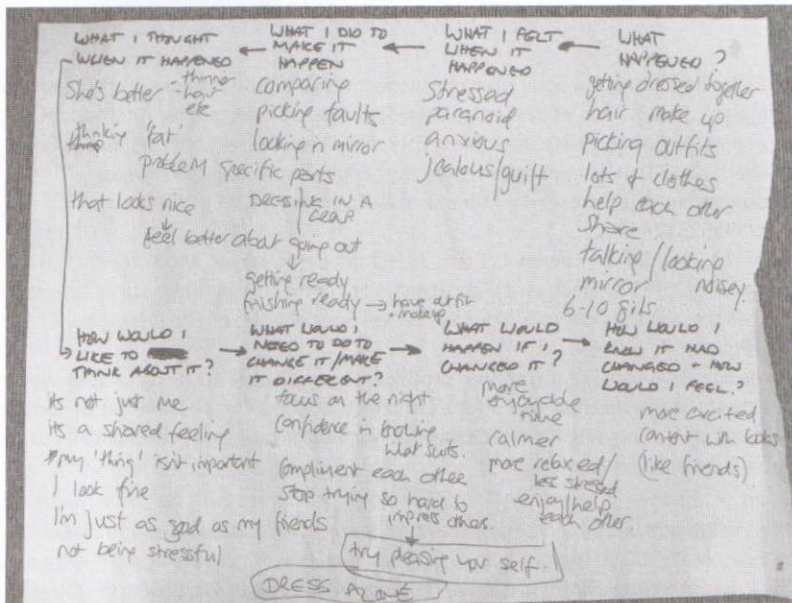 WHAT I THOUGHT WHEN IT HAPPENED
She's better - thinner
- hair
etc
thinking 'fat'
problem specific parts
that looks nice
feel better about going out
WHAT I DID TO MAKE IT HAPPEN
comparing
picking faults
looking in mirror
DRESSING IN A
getting ready
finishing ready → have outfit
+ makeup
WHAT I FELT WHEN IT HAPPENED
Stressed
paranoid
anxious
jealous/guilt
WHAT HAPPENED?
getting dressed together
hair make up
picking outfits
lots of clothes
help each other
share
talking/looking
mirror noisey
6-10 girls
HOW WOULD I
LIKE TO
THINK ABOUT IT?
its not just me
its a shared feeling
my 'thing' isn't important
I look fine
I'm just as good as my friends
not being stressful
WHAT WOULD I
NEED TO DO TO
CHANGE IT/MAKE
IT DIFFERENT?
focus on the night
confidence in
what suits.
Compliment each other
stop trying so hard to
impress others.
try pleasing your self.
DRESS ALONE
WHAT WOULD
HAPPEN IF I
CHANGED IT?
more
enjoyable
time
calmer
more relaxed/
less stressed
enjoy/help
each other.
HOW WOULD I
KNOW IT HAD
CHANGED - HOW
WOULD I FEEL?
more excited
content with looks
(like friends)